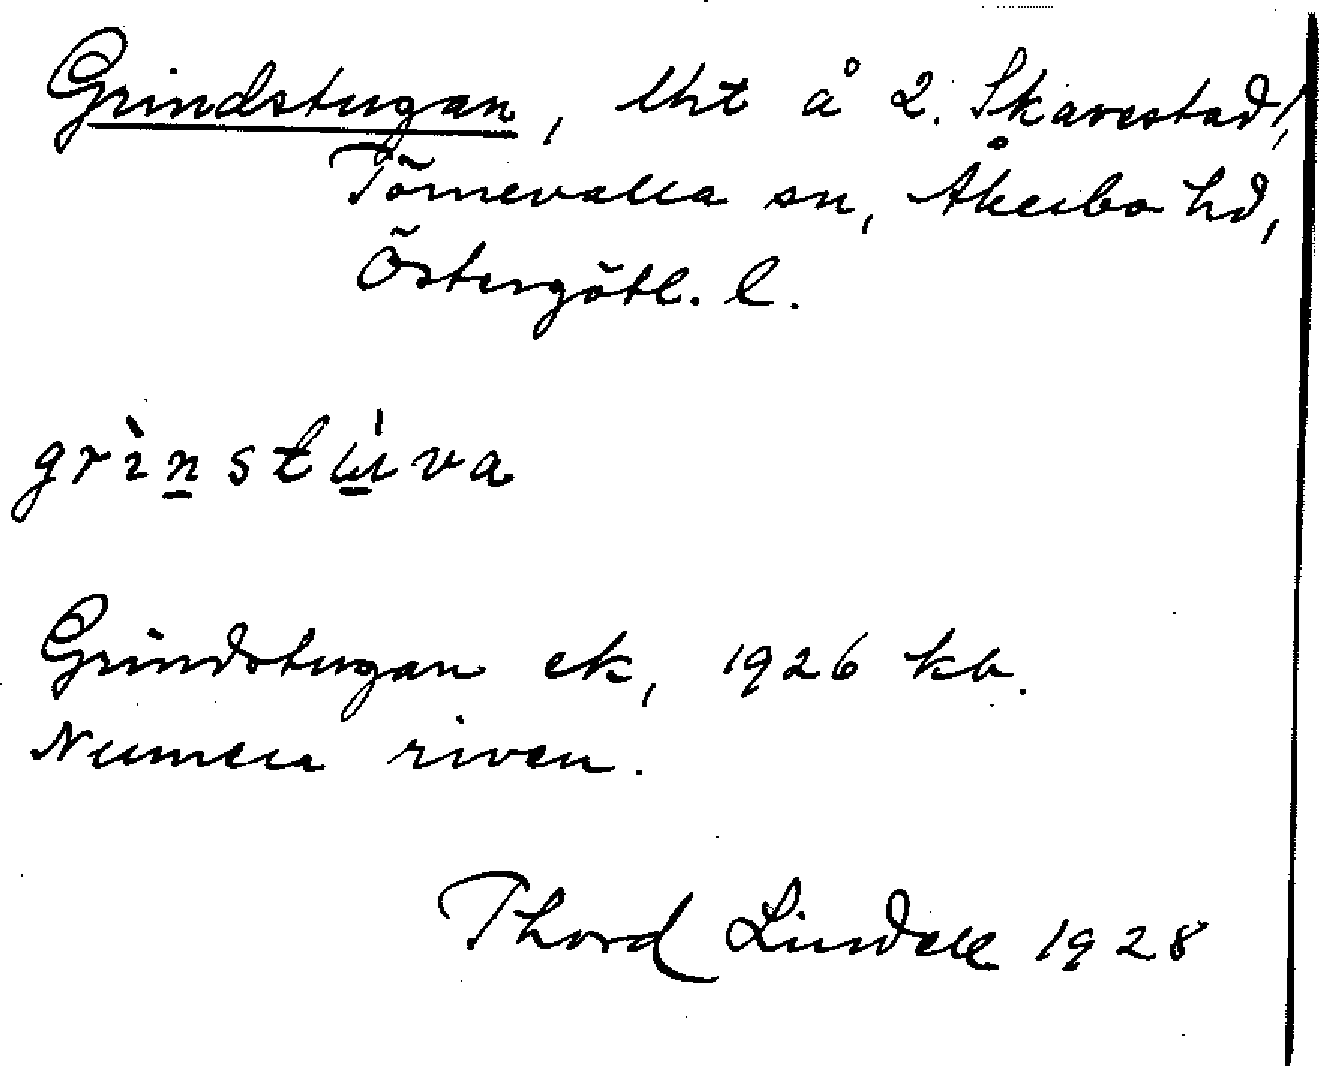 Grindstugan, lht å 2. Skavestad,
Törnevalla sn, Åkerbo hd,
Östergötl. l.
grìnstúva
Grindstugan ek, 1926 kb.
Numera riven.
Thord Lindell 1928